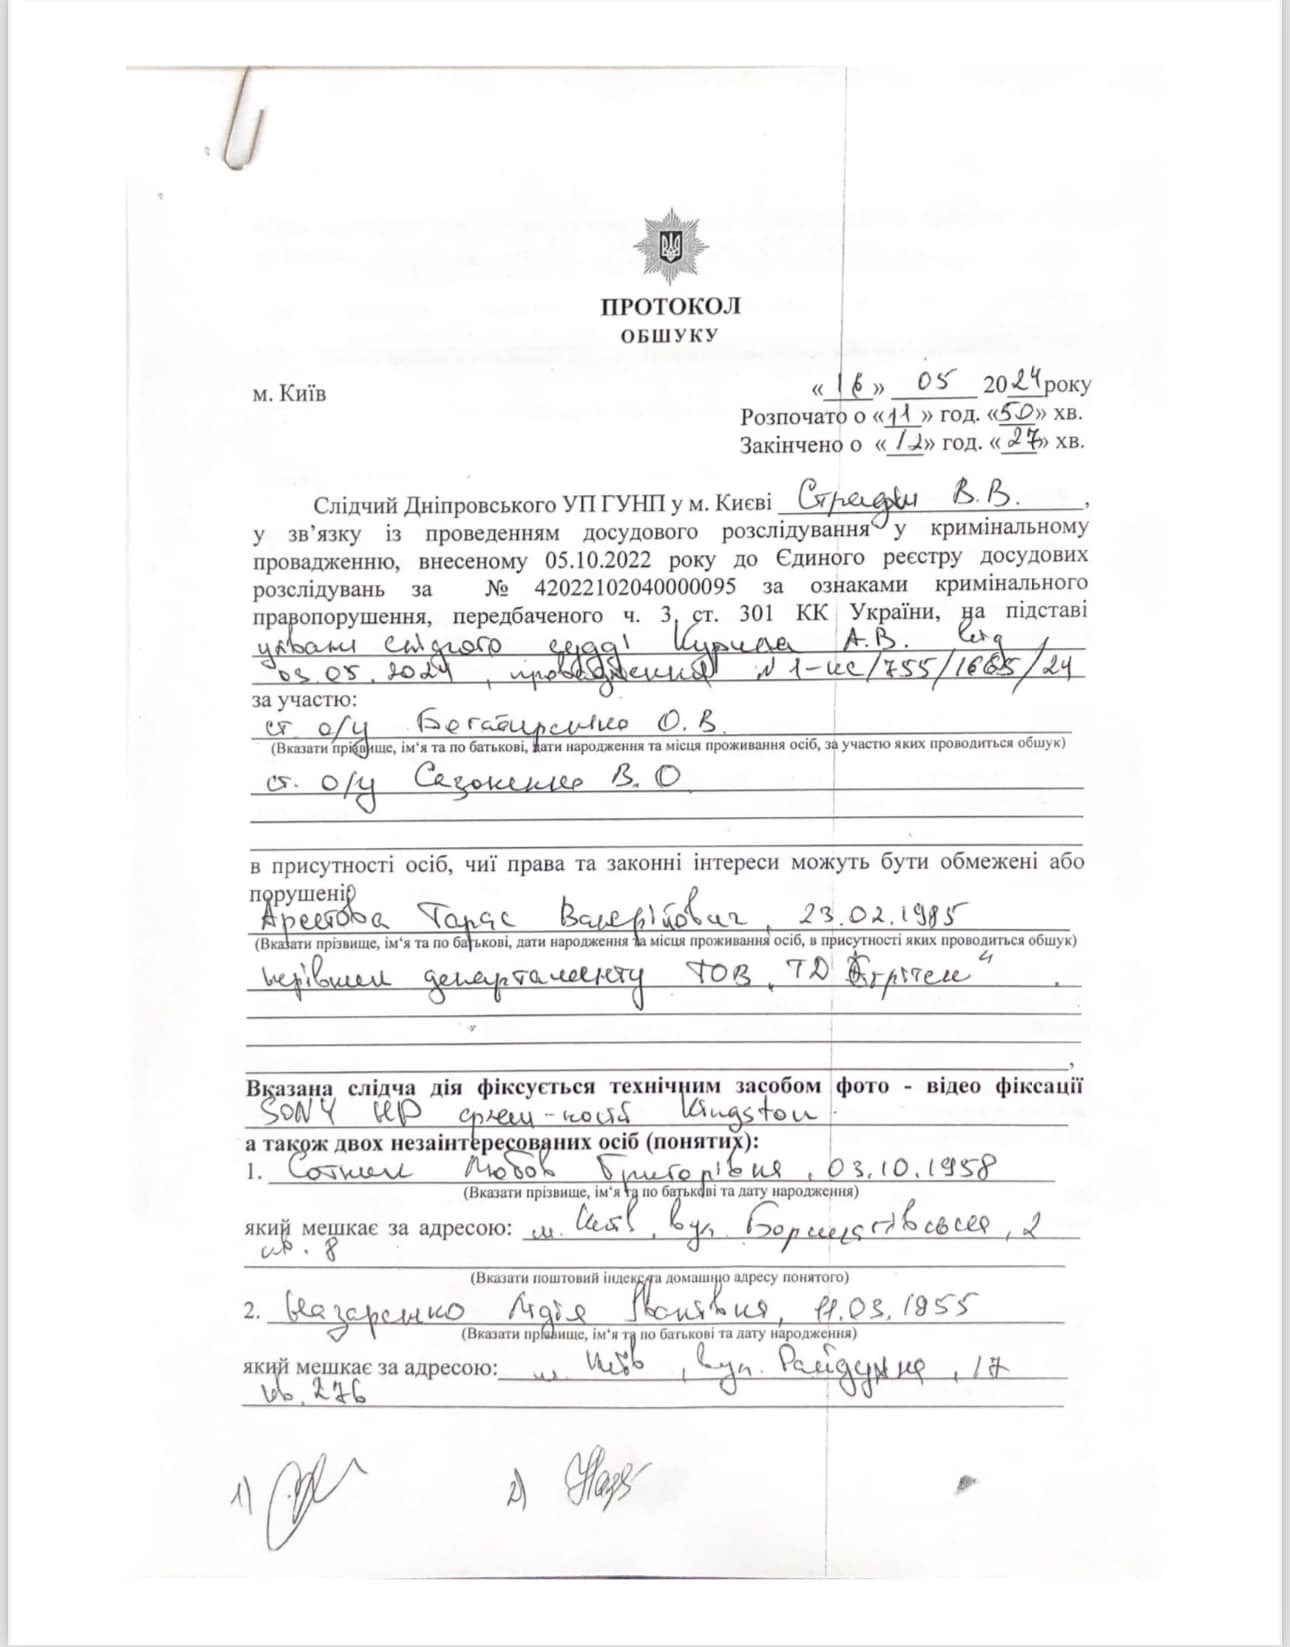 ПРОТОКОЛ
ОБШУКУ
м. Київ
«16» 05 2024 року
Розпочато о «11» год. «50» хв.
Закінчено о «12» год. «27» хв.
Слідчий Дніпровського УП ГУНП у м. Києві В.В. ,
у зв’язку із проведенням досудового розслідування у кримінальному
провадженню, внесеному 05.10.2022 року до Єдиного реєстру досудових
розслідувань за № 42022102040000095 за ознаками кримінального
правопорушення, передбаченого ч. 3 ст. 301 КК України, на підставі
ухвали слідчого судді Курила А.В. від
03.05.2024, провадження № 1-кс/755/1665/24
за участю:
ст. о/у Богатиренко О.В.
(Вказати прізвище, ім‘я та по батькові, дати народження та місця проживання осіб, за участю яких проводиться обшук)
ст. о/у Сазоненко В.О
в присутності осіб, чиї права та законні інтереси можуть бути обмежені або
порушені
Арестова Тарас Валерійович, 23.02.1985
(Вказати прізвище, ім‘я та по батькові, дати народження та місця проживання осіб, в присутності яких проводиться обшук)
керівник департаменту ТОВ "ТД "
,
Вказана слідча дія фіксується технічним засобом фото - відео фіксації
SONY HD флеш-носій Kingston
а також двох незаінтересованих осіб (понятих):
1. Сотник Любов Григорівна, 03.10.1958
(Вказати прізвище, ім‘я та по батькові та дату народження)
який мешкає за адресою: м. Київ, вул. Борщагівська, 2
кв. 8
(Вказати поштовий індекс та домашню адресу понятого)
2. Назаренко Лідія Іванівна, 11.03.1955
(Вказати прізвище, ім‘я та по батькові та дату народження)
який мешкає за адресою: м. Київ, вул. Райдужна, 17
кв. 276
1)
2)